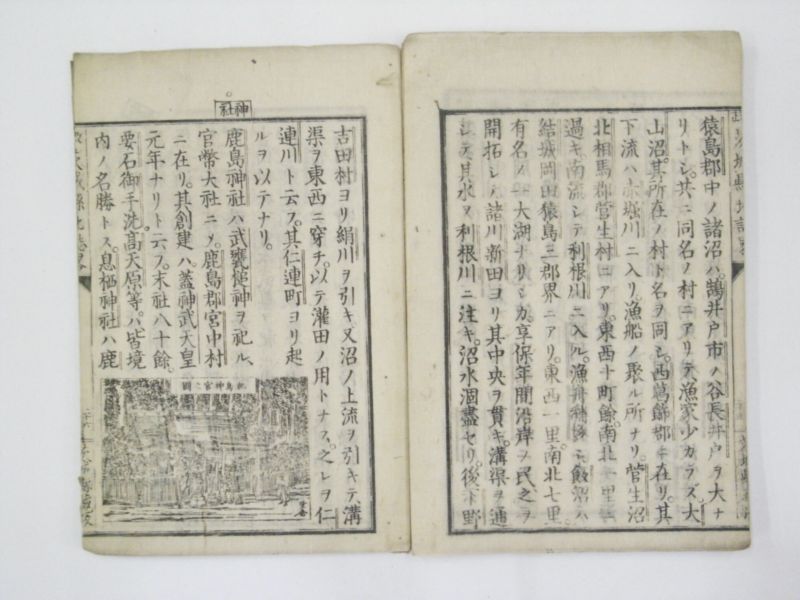 猿島郡中ノ諸沼ハ鵠井戸市ノ谷長井戸ヲ大ナ
リトシ。共ニ同名ノ村ニアリテ漁家少カラズ。大
山沼。其所在ノ村ト名ヲ同シ。西葛飾郡ニ在リ。其
下流ハ赤堀川ニ入リ漁船ノ聚ル所ナリ。菅生沼
北相馬郡菅生村ニアリ。東西十町餘。南北一里ニ
過キ南流シテ利根川ニ入ル。漁舟 飯沼ハ
結城岡田猿島三郡界ニアリ。東西一里。南北七里。
有名ノ一大湖ナリシカ。享保年間沿岸ヲ民之ヲ
開拓シ。諸川新田ヨリ其中央ヲ貫キ。溝渠ヲ通
シテ其水ヲ利根川ニ注キ。沼水涸盡セリ。後下野
神社
吉田村ヨリ絹川ヲ引キ又沼ノ上流ヲ引キテ。溝
渠ヲ東西ニ穿チ。以テ灌田ノ用トナス。之レヲ仁
連川ト云フ。其仁連町ヨリ起
ルヲ以テナリ。
鹿島神社ハ武甕槌神ヲ祀ル。
官幣大社ニメ。鹿島郡宮中村
ニ在リ。其創建ハ蓋神武天皇
元年ナリト云フ。末社八十餘。
要石御手洗高天原等ハ皆境
内ノ名勝トス。息栖神社ハ鹿
鹿島神宮之圖